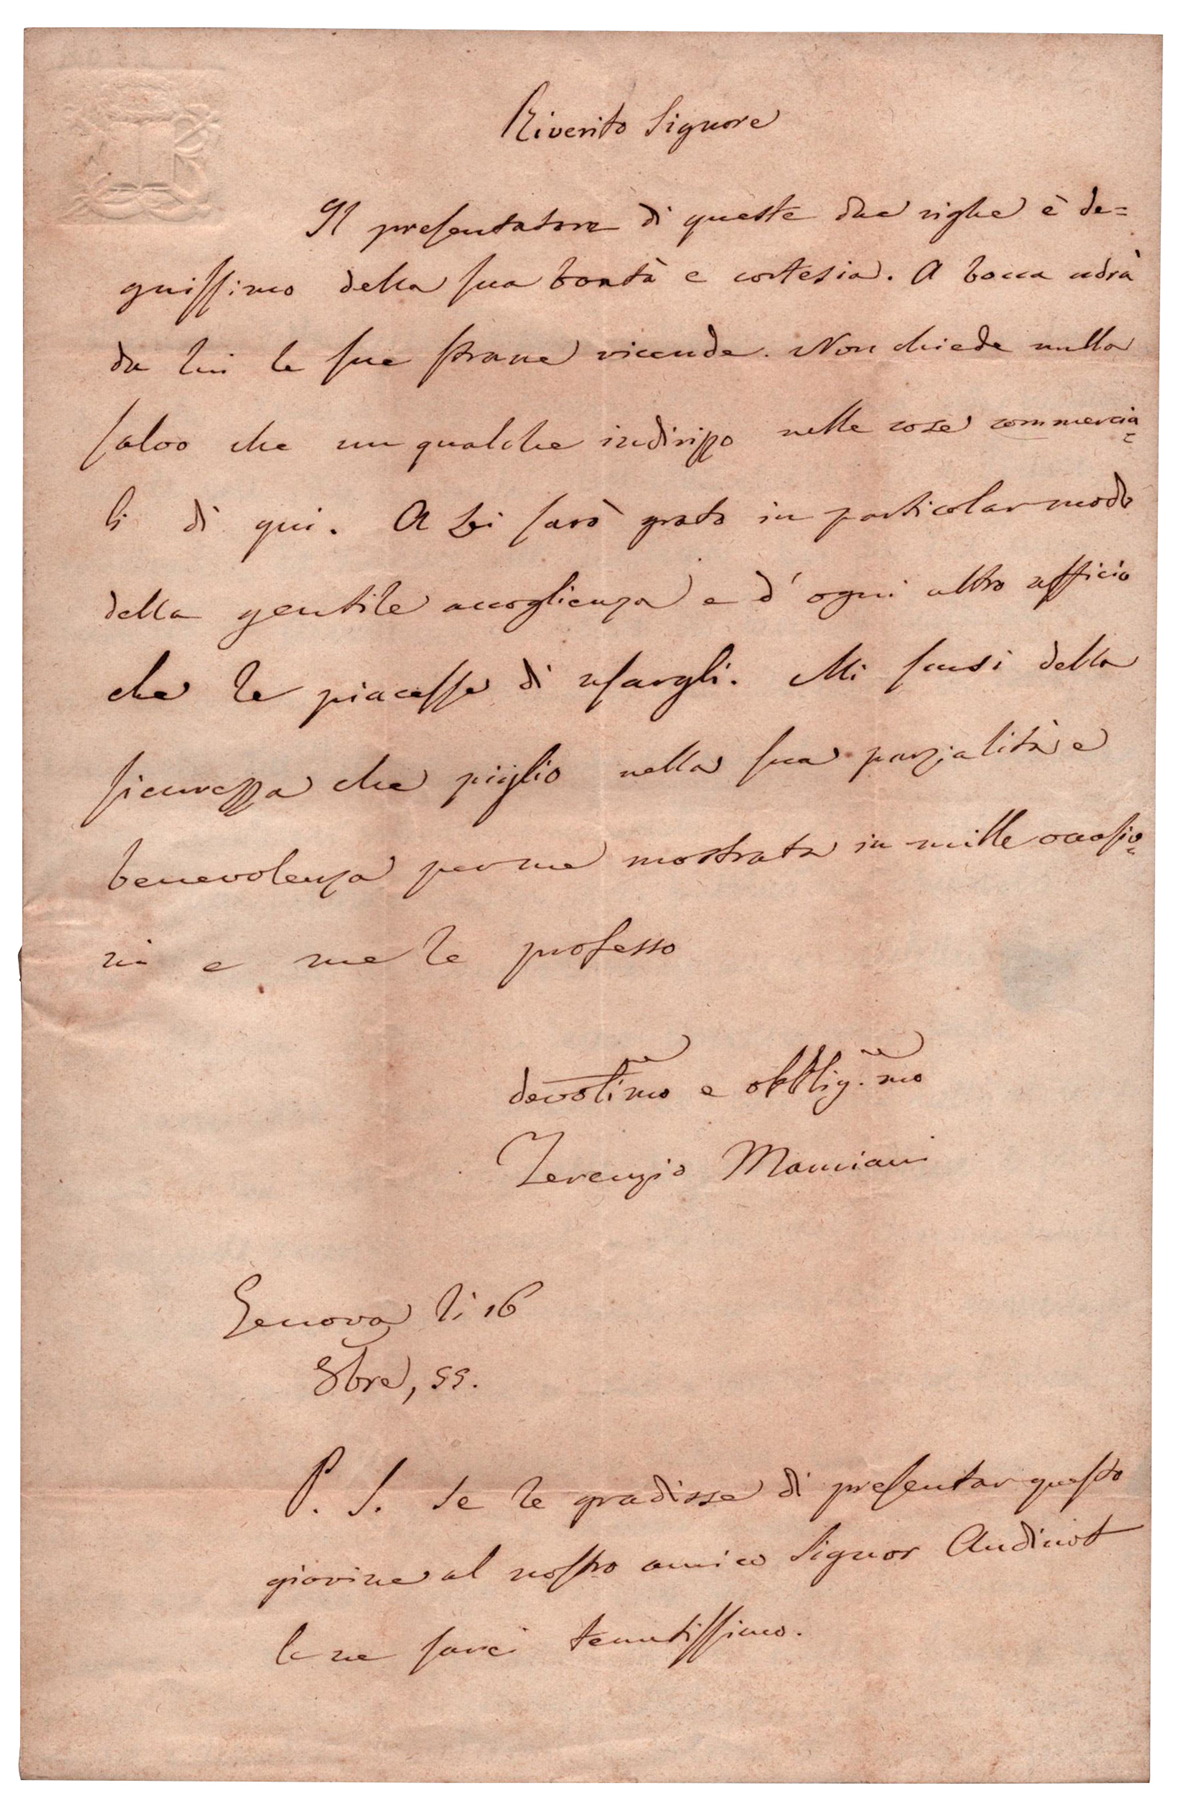 Riverito Signore
Il presentatore di queste due righe è de=
gnissimo della sua bontà e cortesia. A bocca udrà
da lui le sue strane vicende. Non chiede nulla
salvo che un qualche indirizzo nelle cose commercia=
li di qui. A Lei sarò grato in particolar modo
della gentile accoglienza e d'ogni altro ufficio
che le piacesse di usargli. Mi scusi della
sicurezza che piglio nella sua parzialità e
benevolenza per me mostrata in mille occasio=
ni e me le professo
devotis.mo e obblig.mo
Terenzio Mamiani
Genova li 16
8bre, 55.
P. S. Se le gradisse di presentar questo
giovine al nostro amico Signor Audinot
le ne sarei tenutissimo.